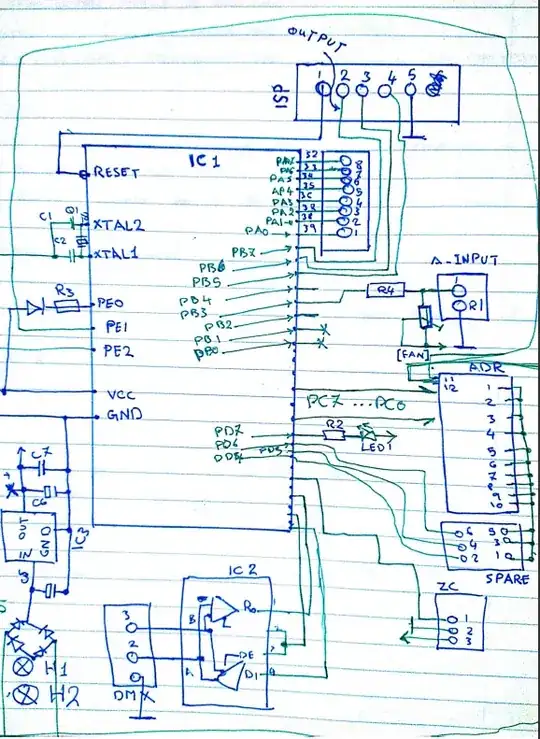 OUTPUT
ISP
1 2 3 4 5
IC1
RESET
C1
Q1
C2
XTAL2
XTAL1
R3
PE0
PE1
PE2
VCC
GND
32
33
34
35
36
38
39
PA5
AP4
PA3
PA2
PA1
PA0
8
7
6
5
4
3
2
1
PB7
PB6
PB5
PB4
PB3
PB2
PB1
PB0
R4
A-INPUT
1
R1
[FAN]
ADR
11
12
1
2
3
4
5
6
7
8
9
10
PC7 ...PC0
PD7
PD6
PD5
R2
LED1
6 5
4 3
2 1
SPARE
C7
C6
+
OUT
IN
GND
IC3
C5
H1
H2
3
2
DMX
IC2
B
A
R0
DE
DI
1
2
3
4
ZC
1
2
3